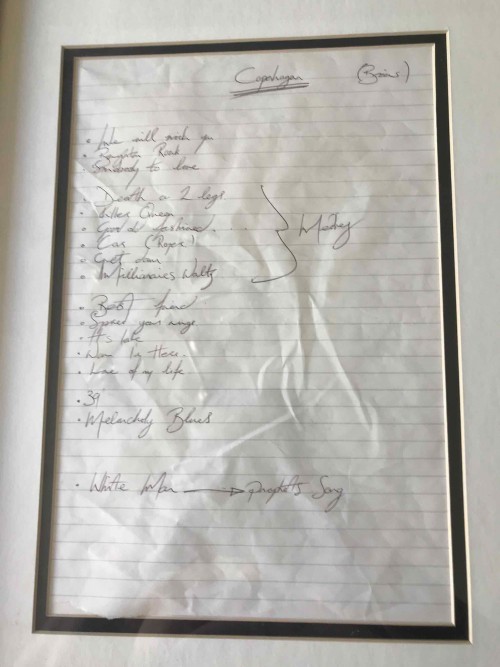 Copenhagen (Brians)
• We will rock you
• Brighton Rock
• Somebody to love
• Death on 2 legs
• Killer Queen
• Good old fashioned.... Medley
• Car (Roger)
• Get down
• Millionaires Waltz
• Best friend
• Spread your wings
• It's late
• Now I'm Here.
• Love of my life
• 39
• Melancholy Blues
• White Man → Prophet's Song